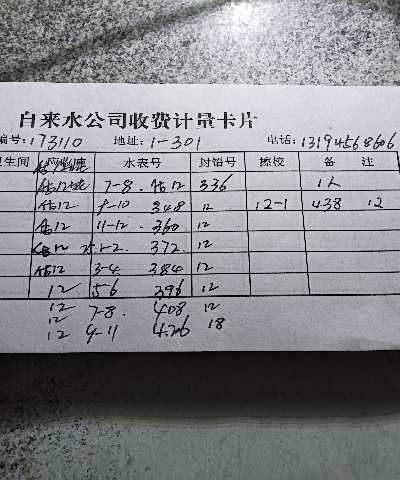 自来水公司收费计量卡片
编号:173110 地址:1-301 电话:13194568606
卫生间 水表号 封铅号 擦校 备 注
估12吨 7-8. 估12 336 1人
估12 8-10 348 12 12-1 438 12
估12 11-12 360 12
估12 1-2 372. 12
估12 3-4 384 12
12 5-6 396 12
12 7-8. 408 12
12 9-11 426 18